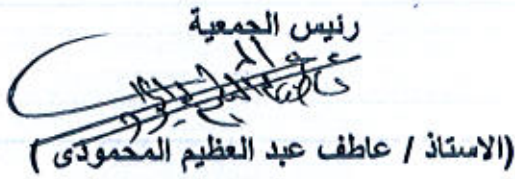 رئيس الجمعية
(الاستاذ / عاطف عبد العظيم المحمودى )